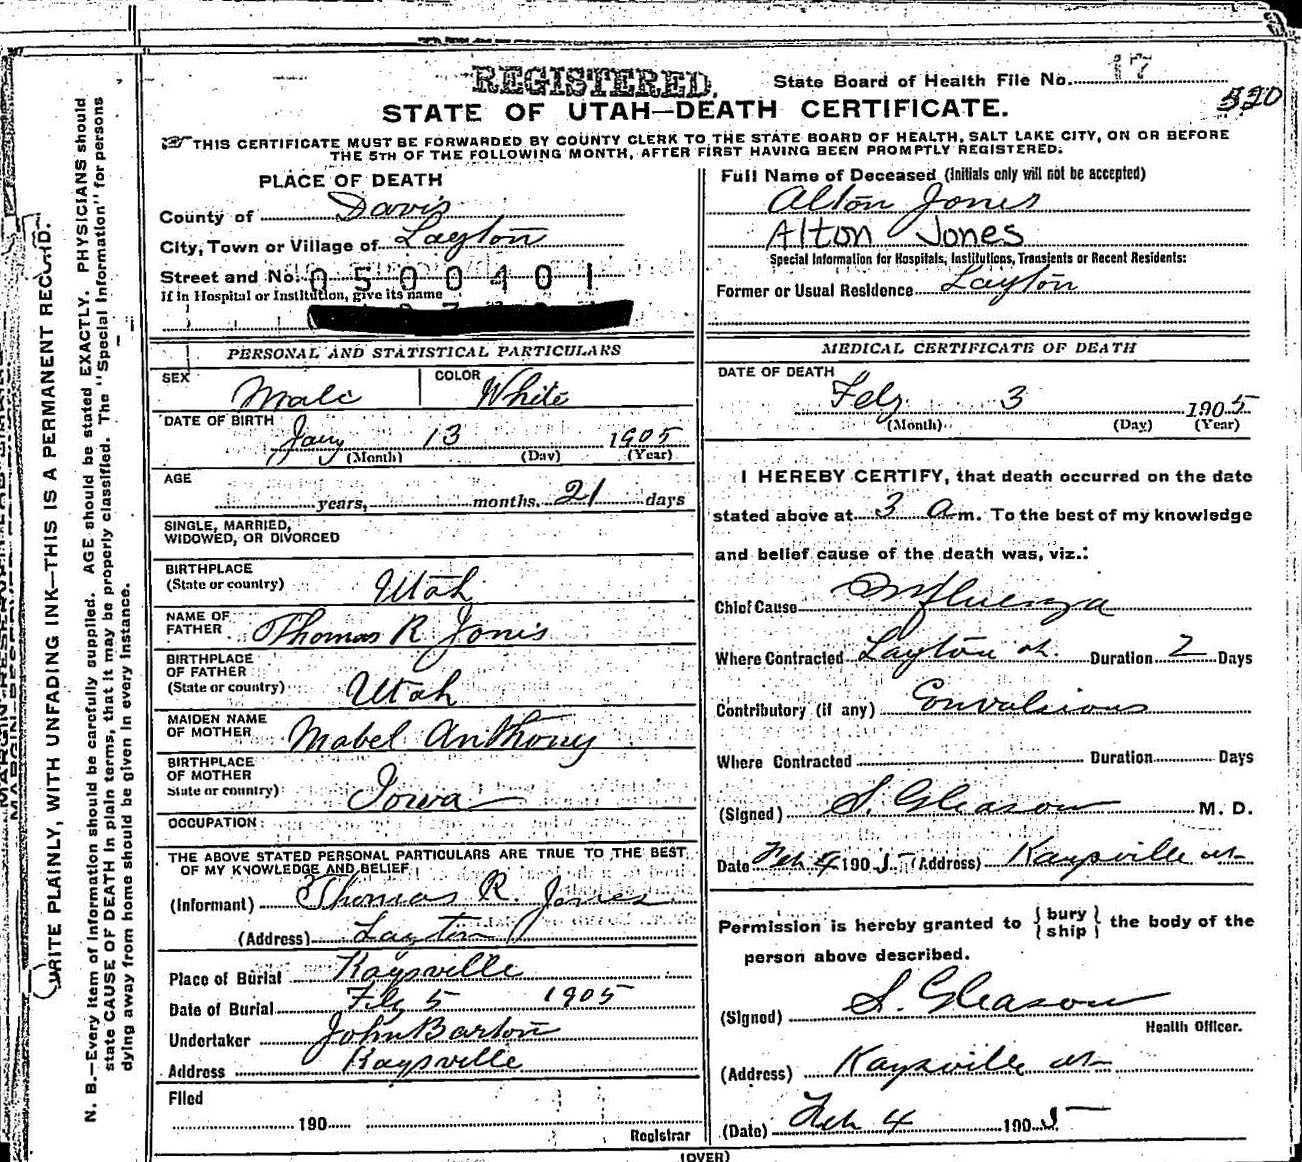 REGISTERED.
State Board of Health File No. 17
320
STATE OF UTAH—DEATH CERTIFICATE.
THIS CERTIFICATE MUST BE FORWARDED BY COUNTY CLERK TO THE STATE BOARD OF HEALTH, SALT LAKE CITY, ON OR BEFORE
THE 5TH OF THE FOLLOWING MONTH, AFTER FIRST HAVING BEEN PROMPTLY REGISTERED.
PLACE OF DEATH
County of Davis
City, Town or Village of Layton
Street and No. 0500401
If in Hospital or Institution, give its name
Full Name of Deceased (Initials only will not be accepted)
Alton Jones
Alton Jones
Special Information for Hospitals, Institutions, Transients or Recent Residents:
Former or Usual Residence Layton
PERSONAL AND STATISTICAL PARTICULARS
SEX Male COLOR White
DATE OF BIRTH Jany 13 1905
(Month) (Day) (Year)
AGE
years, months, 21 days
SINGLE, MARRIED,
WIDOWED, OR DIVORCED
BIRTHPLACE
(State or country) Utah
NAME OF
FATHER Thomas R Jones
BIRTHPLACE
OF FATHER
(State or country) Utah
MAIDEN NAME
OF MOTHER Mabel Anthony
BIRTHPLACE
OF MOTHER
State or country) Iowa
OCCUPATION
THE ABOVE STATED PERSONAL PARTICULARS ARE TRUE TO THE BEST
OF MY KNOWLEDGE AND BELIEF
(Informant) Thomas R. Jones
(Address) Layton
Place of Burial Kaysville
Date of Burial Feb 5 1905
Undertaker John Barton
Address Kaysville
Filed
190
Registrar
MEDICAL CERTIFICATE OF DEATH
DATE OF DEATH
Feby 3 1905
(Month) (Day) (Year)
I HEREBY CERTIFY, that death occurred on the date
stated above at 3 a m. To the best of my knowledge
and belief cause of the death was, viz.:
Chief Cause Influenza
Where Contracted Layton ut. Duration 2 Days
Contributory (if any) Convulsions
Where Contracted Duration Days
(Signed) S. Gleason M. D.
Date Feb 4 1905 (Address) Kaysville ut
Permission is hereby granted to {bury ship} the body of the
person above described.
(Signed) S. Gleason
Health Officer.
(Address) Kaysville ut
(Date) Feb 4 1905
(OVER)
WRITE PLAINLY, WITH UNFADING INK—THIS IS A PERMANENT RECORD.
N. B.—Every item of information should be carefully supplied. AGE should be stated EXACTLY. PHYSICIANS should
state CAUSE OF DEATH in plain terms, that it may be properly classified. The "Special Information" for persons
dying away from home should be given in every instance.